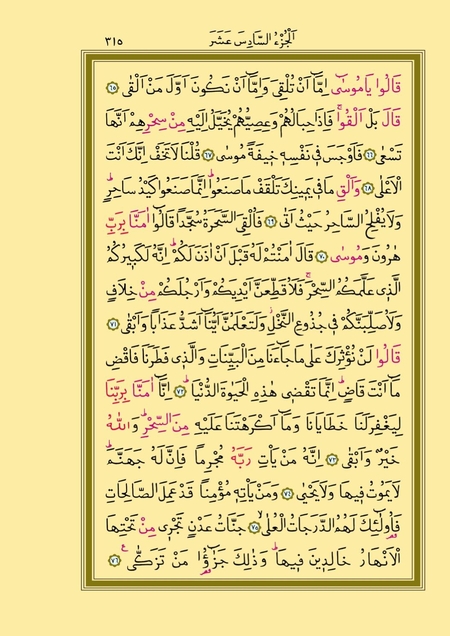 اَلْجُزْءُ السَّادِسَ عَشَرَ
٣١٥
قَالُوا يَامُوسٰٓى اِمَّٓا اَنْ تُلْقِىَ وَاِمَّٓا اَنْ نَكُونَ اَوَّلَ مَنْ اَلْقٰى ﴿٦٥﴾
قَالَ بَلْ اَلْقُواۚ فَاِذَا حِبَالُهُمْ وَعِصِيُّهُمْ يُخَيَّلُ اِلَيْهِ مِنْ سِحْرِهِمْ اَنَّهَا
تَسْعٰى ﴿٦٦﴾ فَاَوْجَسَ ف۪ى نَفْسِه۪ خ۪يفَةً مُوسٰى ﴿٦٧﴾ قُلْنَا لَا تَخَفْ اِنَّكَ اَنْتَ
الْاَعْلٰى ﴿٦٨﴾ وَاَلْقِ مَا ف۪ى يَم۪ينِكَ تَلْقَفْ مَا صَنَعُواۜ اِنَّمَا صَنَعُوا كَيْدُ سَاحِرٍۜ
وَلَا يُفْلِحُ السَّاحِرُ حَيْثُ اَتٰى ﴿٦٩﴾ فَاُلْقِىَ السَّحَرَةُ سُجَّدًا قَالُٓوا اٰمَنَّا بِرَبِّ
هٰرُونَ وَمُوسٰى ﴿٧٠﴾ قَالَ اٰمَنْتُمْ لَهُ قَبْلَ اَنْ اٰذَنَ لَكُمْۜ اِنَّهُ لَكَب۪يرُكُمُ
الَّذ۪ى عَلَّمَكُمُ السِّحْرَۚ فَلَاُقَطِّعَنَّ اَيْدِيَكُمْ وَاَرْجُلَكُمْ مِنْ خِلَافٍ
وَلَاُصَلِّبَنَّكُمْ ف۪ى جُذُوعِ النَّخْلِۘ وَلَتَعْلَمُنَّ اَيُّنَٓا اَشَدُّ عَذَابًا وَاَبْقٰى ﴿٧١﴾
قَالُوا لَنْ نُؤْثِرَكَ عَلٰى مَا جَٓاءَنَا مِنَ الْبَيِّنَاتِ وَالَّذ۪ى فَطَرَنَا فَاقْضِ
مَٓا اَنْتَ قَاضٍۜ اِنَّمَا تَقْض۪ى هٰذِهِ الْحَيٰوةَ الدُّنْيَاۜ ﴿٧٢﴾ اِنَّٓا اٰمَنَّا بِرَبِّنَا
لِيَغْفِرَ لَنَا خَطَايَانَا وَمَٓا اَكْرَهْتَنَا عَلَيْهِ مِنَ السِّحْرِۜ وَاللّٰهُ
خَيْرٌ وَاَبْقٰى ﴿٧٣﴾ اِنَّهُ مَنْ يَأْتِ رَبَّهُ مُجْرِمًا فَاِنَّ لَهُ جَهَنَّمَۜ
لَا يَمُوتُ ف۪يهَا وَلَا يَحْيٰى ﴿٧٤﴾ وَمَنْ يَأْتِه۪ مُؤْمِنًا قَدْ عَمِلَ الصَّالِحَاتِ
فَاُو۬لٰٓئِكَ لَهُمُ الدَّرَجَاتُ الْعُلٰىۙ ﴿٧٥﴾ جَنَّاتُ عَدْنٍ تَجْر۪ى مِنْ تَحْتِهَا
الْاَنْهَارُ خَالِد۪ينَ ف۪يهَاۜ وَذٰلِكَ جَزٰٓؤُ۬ا مَنْ تَزَكّٰى ﴿٧٦﴾